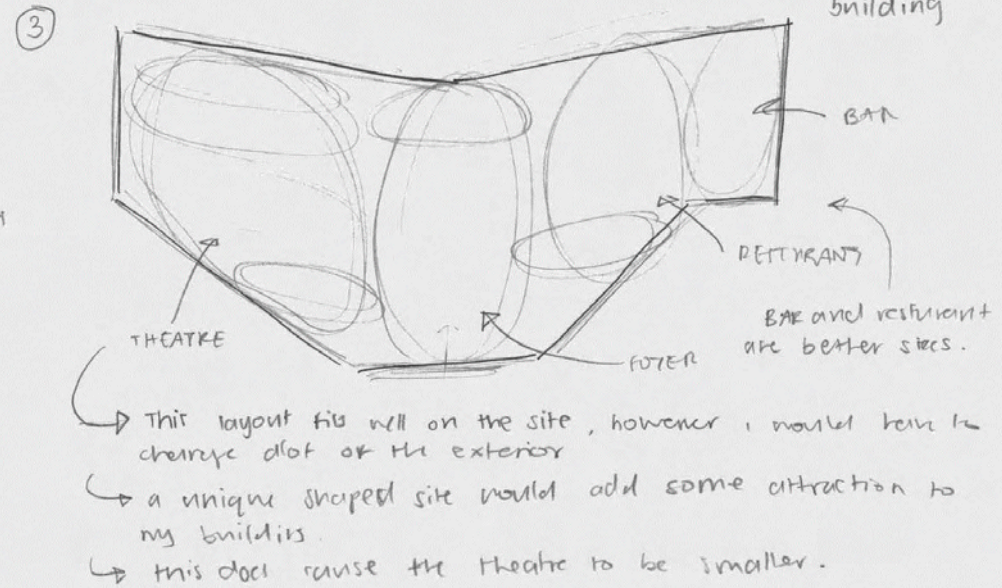 3
building
BAR
RESTURANT
BAR and resturant
are better sizes.
THEATRE
FOYER
This layout fits well on the site, however i would have to
change alot of the exterior
a unique shaped site would add some attraction to
my building.
this does cause the theatre to be smaller.